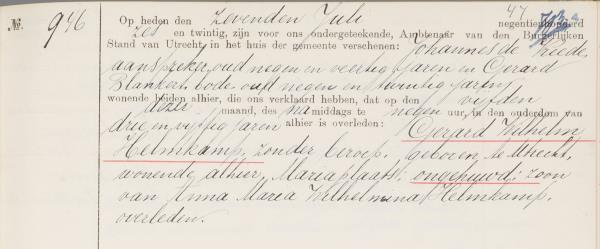 47
№. 946 Op heden den zevenden Juli negentienhonderd
zes en twintig, zijn voor ons ondergeteekende, Ambtenaar van den Burgerlijken
Stand van Utrecht, in het huis der gemeente verschenen: Johannes de Vreede,
aanspreker, oud negen en veertig jaren en Gerard
Blankert, bode oud negen en twintig jaren,
wonende beiden alhier, die ons verklaard hebben, dat op den vijfden
dezer maand, des namiddags te negen uur, in den ouderdom van
drie en vijftig jaren alhier is overleden: Gerard Wilhelm
Helmkamp, zonder beroep, geboren te Utrecht,
wonende alhier, Mariaplaats, ongehuwd; zoon
van Anna Maria Wilhelmina Helmkamp,
overleden.